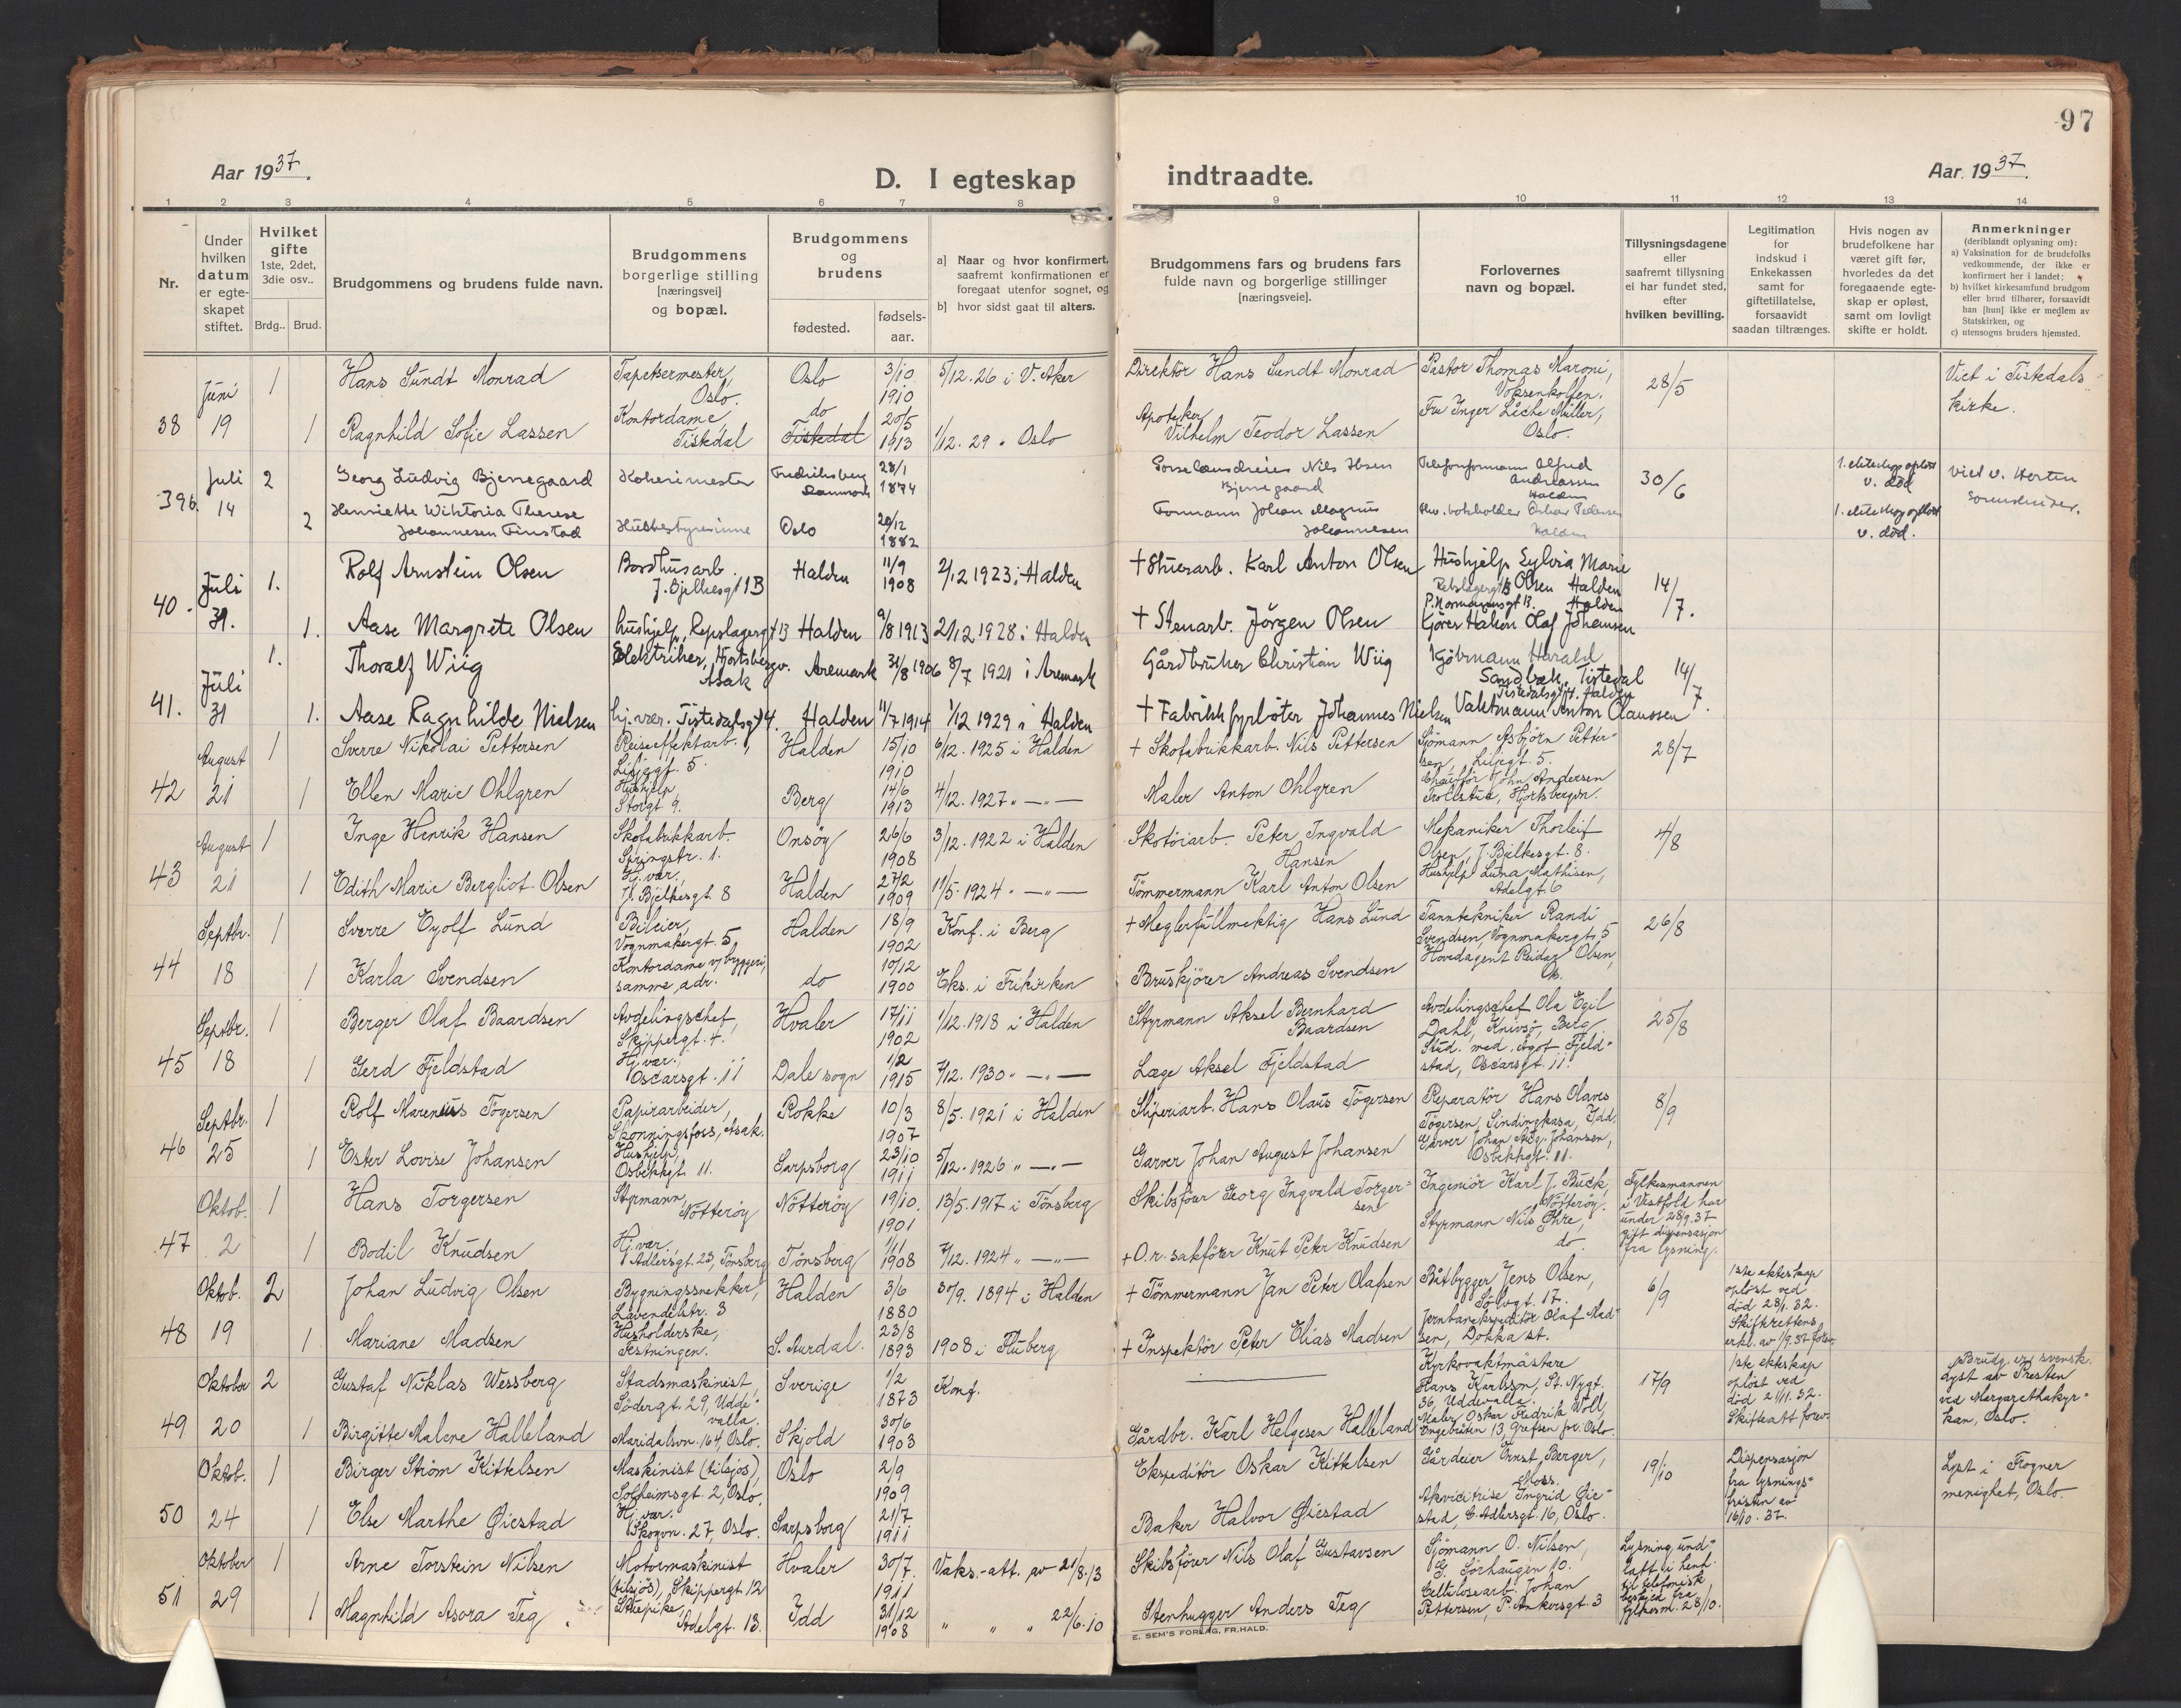 97
Aar 1937.
D. I egteskap indtraadte.
Aar 1937.
1 2 3 4 5 6 7 8 9 10 11 12 13 14
Nr.
Under hvilken datum er egteskapet stiftet.
Hvilket gifte 1ste, 2det, 3die osv..
Brdg.. Brud.
Brudgommens og brudens fulde navn.
Brudgommens borgerlige stilling [næringsvei] og bopæl.
Brudgommens og brudens
fødested.
fødselsaar.
a) Naar og hvor konfirmert, saafremt konfirmationen er foregaat utenfor sognet, og
b) hvor sidst gaat til alters.
Brudgommens fars og brudens fars fulde navn og borgerlige stillinger [næringsveie].
Forlovernes navn og bopæl.
Tillysningsdagene eller saafremt tillysning ei har fundet sted, efter hvilken bevilling.
Legitimation for indskud i Enkekassen samt for giftetillatelse, forsaavidt saadan tiltrænges.
Hvis nogen av brudefolkene har været gift før, hvorledes da det foregaaende egteskap er opløst, samt om lovligt skifte er holdt.
Anmerkninger (deriblandt oplysning om):
a) Vaksination for de brudefolks vedkommende, der ikke er konfirmert her i landet;
b) hvilket kirkesamfund brudgom eller brud tilhører, forsaavidt han [hun] ikke er medlem av Statskirken, og
c) utensogns bruders hjemsted.
38 Juni 19
1 Hans Sundt Monrad Tapetsermester, Oslo. Oslo 3/10 1910 5/12.26 i V. Aker Direktör Hans Sundt Monrad Pastor Thomas Maroni, Voksenkollen. 28/5 Viet i Tistedals kirke.
1 Ragnhild Sofie Lassen Kontordame, Tistedal do Tistedal 20/5 1913 1/12.29 " Oslo Apoteker Vilhelm Teodor Lassen Fru Inger Liche Müller, Oslo.
39b. Juli 14
2 Georg Ludvig Bjerregaard Fredriksberg Danmark 28/1 1874 Nils Ibsen Bjerregaard Telefonformann Alfred Andreassen Halden 30/6 1. ekteskap opløst v. død
2 Henriette Wiktoria Therese Johannesen Finstad Husbestyrerinne Oslo 20/12 1882 Formann Johan Magnus Johannesen Oskar Pedersen Halden 1. ekteskap opløst v. død.
40. Juli 31.
1. Rolf Arnstein Olsen Bordhusarb. J. Bjelkesgt 1B Halden 11/9 1908 2/12 1923 i Halden + Stuerarb. Karl Anton Olsen Hushjelp Sylvia Marie Olsen Halden 14/7.
1. Aase Margrete Olsen hushjelp, Repslagergt 13 Halden 9/8 1913 2/12 1928 i Halden + Stenarb. Jörgen Olsen Kjörer Hakon Olaf Johansen
41. Juli 31
1. Thoralf Wiig Elektriker, Hjortsbergv. Asak Aremark 31/8 1906 8/7 1921 i Aremark Gårdbruker Christian Wiig Kjöbmann Harald Sandbæk, Tistedal 14/7
1. Aase Ragnhilde Nielsen hj. vær. Tistedalsgt 4. Halden 11/7 1914 1/12 1929 i Halden + Fabrikkfyrböter Johannes Nielsen Tistedalsgt 4. Halden Vaktmann Anton Claussen
42 August 21
1 Sverre Nikolai Pettersen Reiseeffektarb., Liljegt. 5. Halden 15/10 1910 6/12.1925 i Halden + Skofabrikkarb. Nils Pettersen Sjömann Asbjörn Pettersen, Liljegt. 5. 28/7
1 Ellen Marie Ohlgren Hushjelp, Storgt 9. Berg 14/6 1913 4/12.1927 " — " — Maler Anton Ohlgren Chaufför John Andersen Trollstua, Hjortsbergvn.
43 August 21
1 Inge Henrik Hansen Skofabrikkarb. Springstr. 1. Onsöy 26/6 1908 3/12.1922 i Halden Skotöiarb. Peter Ingvald Hansen Mekaniker Thorleif Olsen, J. Bjelkesgt. 8. 4/8
1 Edith Marie Bergliot Olsen Hj. vær. J. Bjelkesgt. 8 Halden 27/2 1909 11/5.1924 " — " — Tömmermann Karl Anton Olsen Hushjelp Luna Mathisen, Adelgt. 6
44 Septbr. 18
1 Sverre Eyolf Lund Bileier, Vognmakergt. 5 Halden 18/9 1902 Konf. i Berg + Meglerfullmektig Hans Lund Tanntekniker Randi Svendsen, Vognmakergt. 5 26/8
1 Karla Svendsen Kontordame v/ bryggeri, samme adr. do 10/12 1900 Eks. i Frikirken Bruskjörer Andreas Svendsen Hovedagent Reidar Olsen,
45 Septbr. 18
1 Berger Olaf Baardsen Avdelingschef, Skippergt. 4. Hvaler 17/11 1902 1/12.1918 i Halden Styrmann Aksel Bernhard Baardsen Avdelingschef Ole Egil Dahl, Knivsö, Berg 25/8
1 Gerd Fjeldstad Hj. vær., Oscarsgt. 11 Dale sogn 1/2 1915 7/12.1930 " — " — Læge Aksel Fjeldstad Stud. med. Ågot Fjeldstad, Oscarsgt. 11.
46 Septbr. 25
1 Rolf Marenius Togersen Papirarbeider, Skonningsfoss, Asak. Rokke 10/3 1907 8/5.1921 i Halden Sliperiarb. Hans Olaus Tögersen Reparatör Hans Olaves Tögersen, Sindingkasa, Idd. 8/9
1 Ester Lovise Johansen Hushjelp, Osbekkgt. 11. Sarpsborg 23/10 1911 5/12.1926 " — " — Garver Johan August Johansen Garver Johan Aug. Johansen, Osbekkgt. 11.
47 Oktob. 2
1 Hans Torgersen Styrmann, Nötteröy Nötteröy 19/10. 1901 13/5.1917 i Tönsberg Skibsförer Georg Ingvald Torgersen Ingeniör Karl J. Buck, Nötteröy. Fylkesmannen i Vestfold har under 28/9.37 gitt dispensasjon fra lysning.
1 Bodil Knudsen Hj. vær. Adlersgt. 23, Tönsberg Tönsberg 1/11 1908 7/12.1924 " — " — + O.r. sakförer Knut Peter Knudsen Styrmann Nils Öhre, do.
48 Oktob. 19
2 Johan Ludvig Olsen Bygningssnekker, Lavendelstr. 3 Halden 3/6 1880 30/9. 1894 i Halden + Tömmermann Jan Peter Olafsen Båtbygger Jens Olsen, Sölvgt. 17. 6/9 1ste ekteskap oplöst ved död 28/1.32. Skifterettens erkl. av 1/9.37 forev.
1 Mariane Madsen Husholderske, Festningen. S. Aurdal. 23/8 1893 1908 i Fluberg + Inspektör Peter Elias Madsen Jernbaneekspeditör Olaf Madsen, Dokka st.
49 Oktober 20
2 Gustaf Niklas Wessberg Stadsmaskinist, Södergt. 29, Uddevalla. Sverige 1/2 1873 Konf. — Kyrkovaktmästare Hans Karlsson, St. Nygt. 36, Uddevalla. 17/9 1ste ekteskap oplöst ved död 21/11.32. Skifteatt forev. Brudg. er svensk. Lyst av Presten ved Margarethakyrkan, Oslo.
1 Birgitte Malene Halleland Maridalsvn. 164, Oslo. Skjold 30/6 1903 Gårdbr. Karl Helgesen Halleland Maler Oskar Fredrik Woll, Engebråten 13, Grefsen pr. Oslo.
50 Oktob. 24
1 Birger Ström Kittelsen Maskinist (tilsjös), Solheimsgt. 2, Oslo. Oslo 2/9 1909 Ekspeditör Oskar Kittelsen Gårdeier Ernst Berger, Moss. 19/10 Dispensasjon fra lysningsfristen av 16/10.37. Lyst i Frogner menighet, Oslo.
1 Else Marthe Øiestad Hj. vær. Skogvn. 27, Oslo. Sarpsborg 21/7 1911 Baker Halvor Øiestad Akvisitrise Ingrid Øiestad, C. Adlersgt. 16, Oslo.
51 Oktober 29
1 Arne Torstein Nilsen Motormaskinist (tilsjös), Skippergt. 12 Hvaler 30/7. 1911 Vaks.-att. av 21/8.13 Skibsförer Nils Olaf Gustavsen Sjömann O. Nilsen, G. Sörhaugen 10. Lysning undlatt i henh. til telefonisk beskjed fra fylkesm. 28/10.
1 Magnhild Asora Teg Adelgt. 13. Idd 31/12 1908 " " " 22/6.10 Stenhugger Anders Teg Cellulosearb. Johan Pettersen, P. Ankersgt. 3
E. SEM'S FORLAG, FR.HALD.